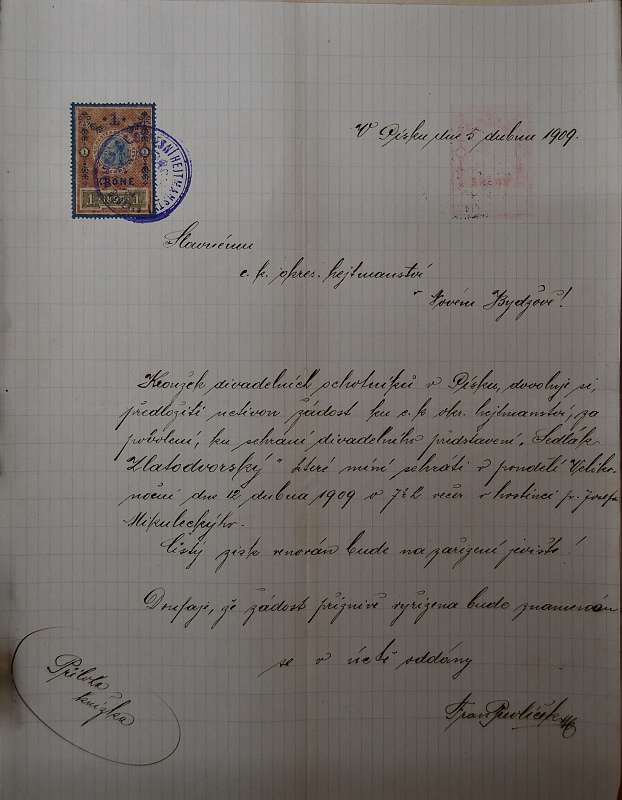 1
KRONE
1 1898 1
V Písku dne 5 dubna 1909.
Slavnému
c. k. okres. hejtmanství
v Novém Bydžově!
Kroužek divadelních ochotníků v Písku, dovoluje si,
předložiti uctivou žádost ku c. k. okr. hejtmanství, za
povolení, ku sehraní divadelního představení „Sedlák
Zlatodvorský“ které míní sehráti v pondělí Veliko-
noční dne 12 dubna 1909 o 7½ večer v hostinci p. Josefa
Mikuleckýho.
Čistý zisk věnován bude na zařízení jeviště!
Doufaje, že žádost příznivě vyřízena bude znamenám
se v úctě oddaný
Fran Pavlíček
Příloha
knížka